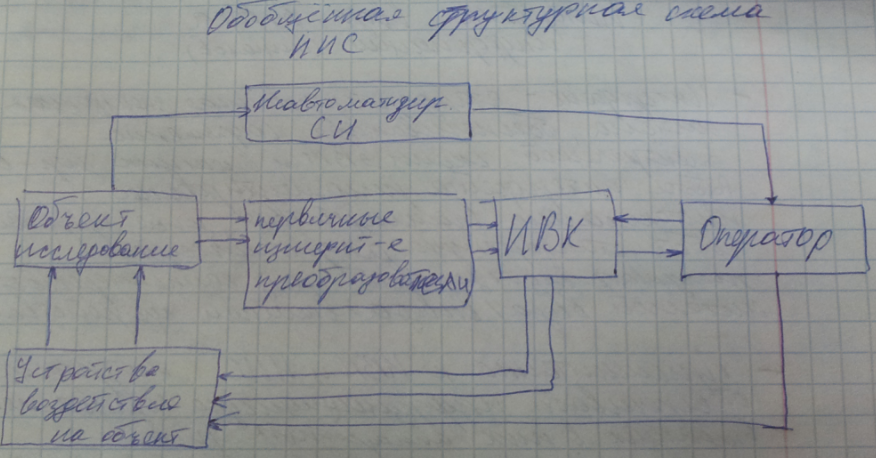 Обобщённая структурная схема
ИИС
Неавтоматизир.
СИ
Объект
исследование
первичные
измерит-е
преобразователи
ИВК
Оператор
Устройства
воздействия
на объект